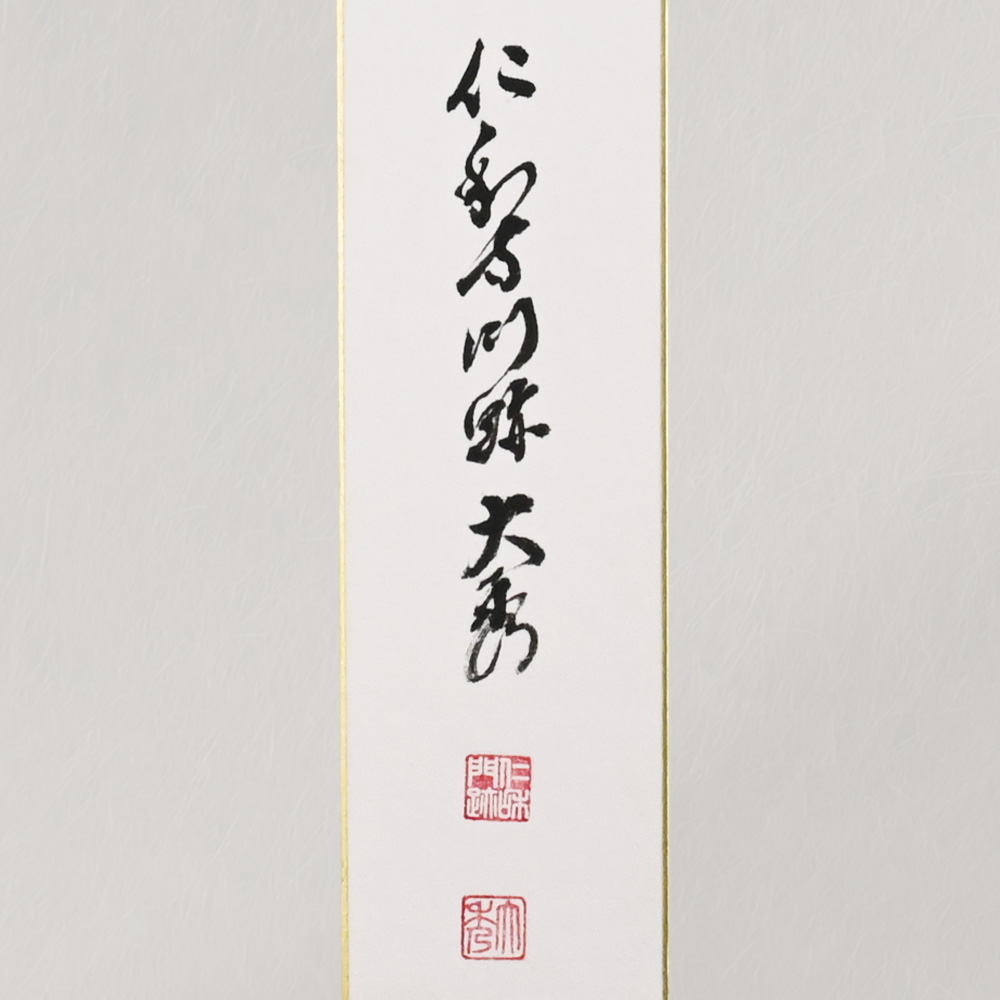 仁和寺門跡 大秀
仁和門跡
大秀